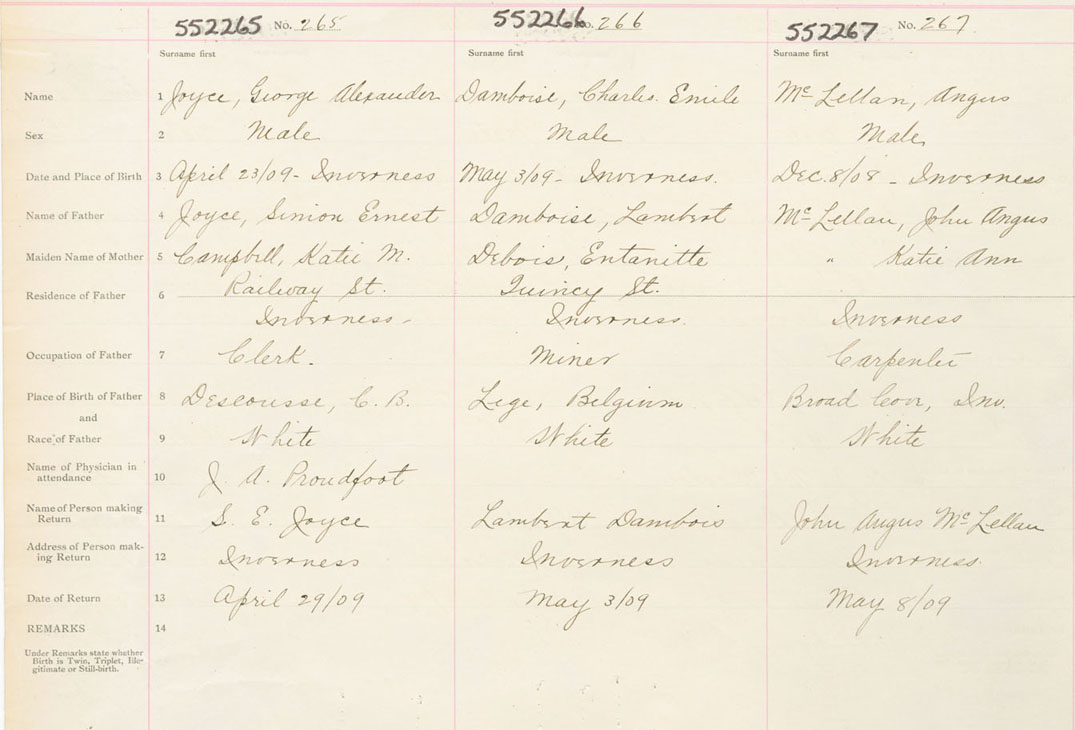 552265 No. 265 552266 No. 266 552267 No. 267
Surname first Surname first Surname first
Name 1 Joyce, George Alexander Damboise, Charles Emile Mc Lellan, Angus
Sex 2 Male Male Male
Date and Place of Birth 3 April 23/09 - Inverness May 3/09 - Inverness. Dec. 8/08 - Inverness
Name of Father 4 Joyce, Simion Ernest Damboise, Lambert Mc Lellan, John Angus
Maiden Name of Mother 5 Campbell, Katie M. Debois, Entanitte " Katie Ann
Railway St. Quincy St.
Residence of Father 6
Inverness - Inverness. Inverness
Occupation of Father 7 Clerk. Miner Carpenter
Place of Birth of Father 8 Descousse, C. B. Lege, Belgium Broad Cove, Inv.
and
Race of Father 9 White White White
Name of Physician in
attendance 10 J. A. Proudfoot
Name of Person making
Return 11 S. E. Joyce Lambert Dambois John Angus Mc Lellan
Address of Person mak-
ing Return 12 Inverness Inverness Inverness.
Date of Return 13 April 29/09 May 3/09 May 8/09
REMARKS 14
Under Remarks state whether
Birth is Twin, Triplet, Ille-
gitimate or Still-birth.